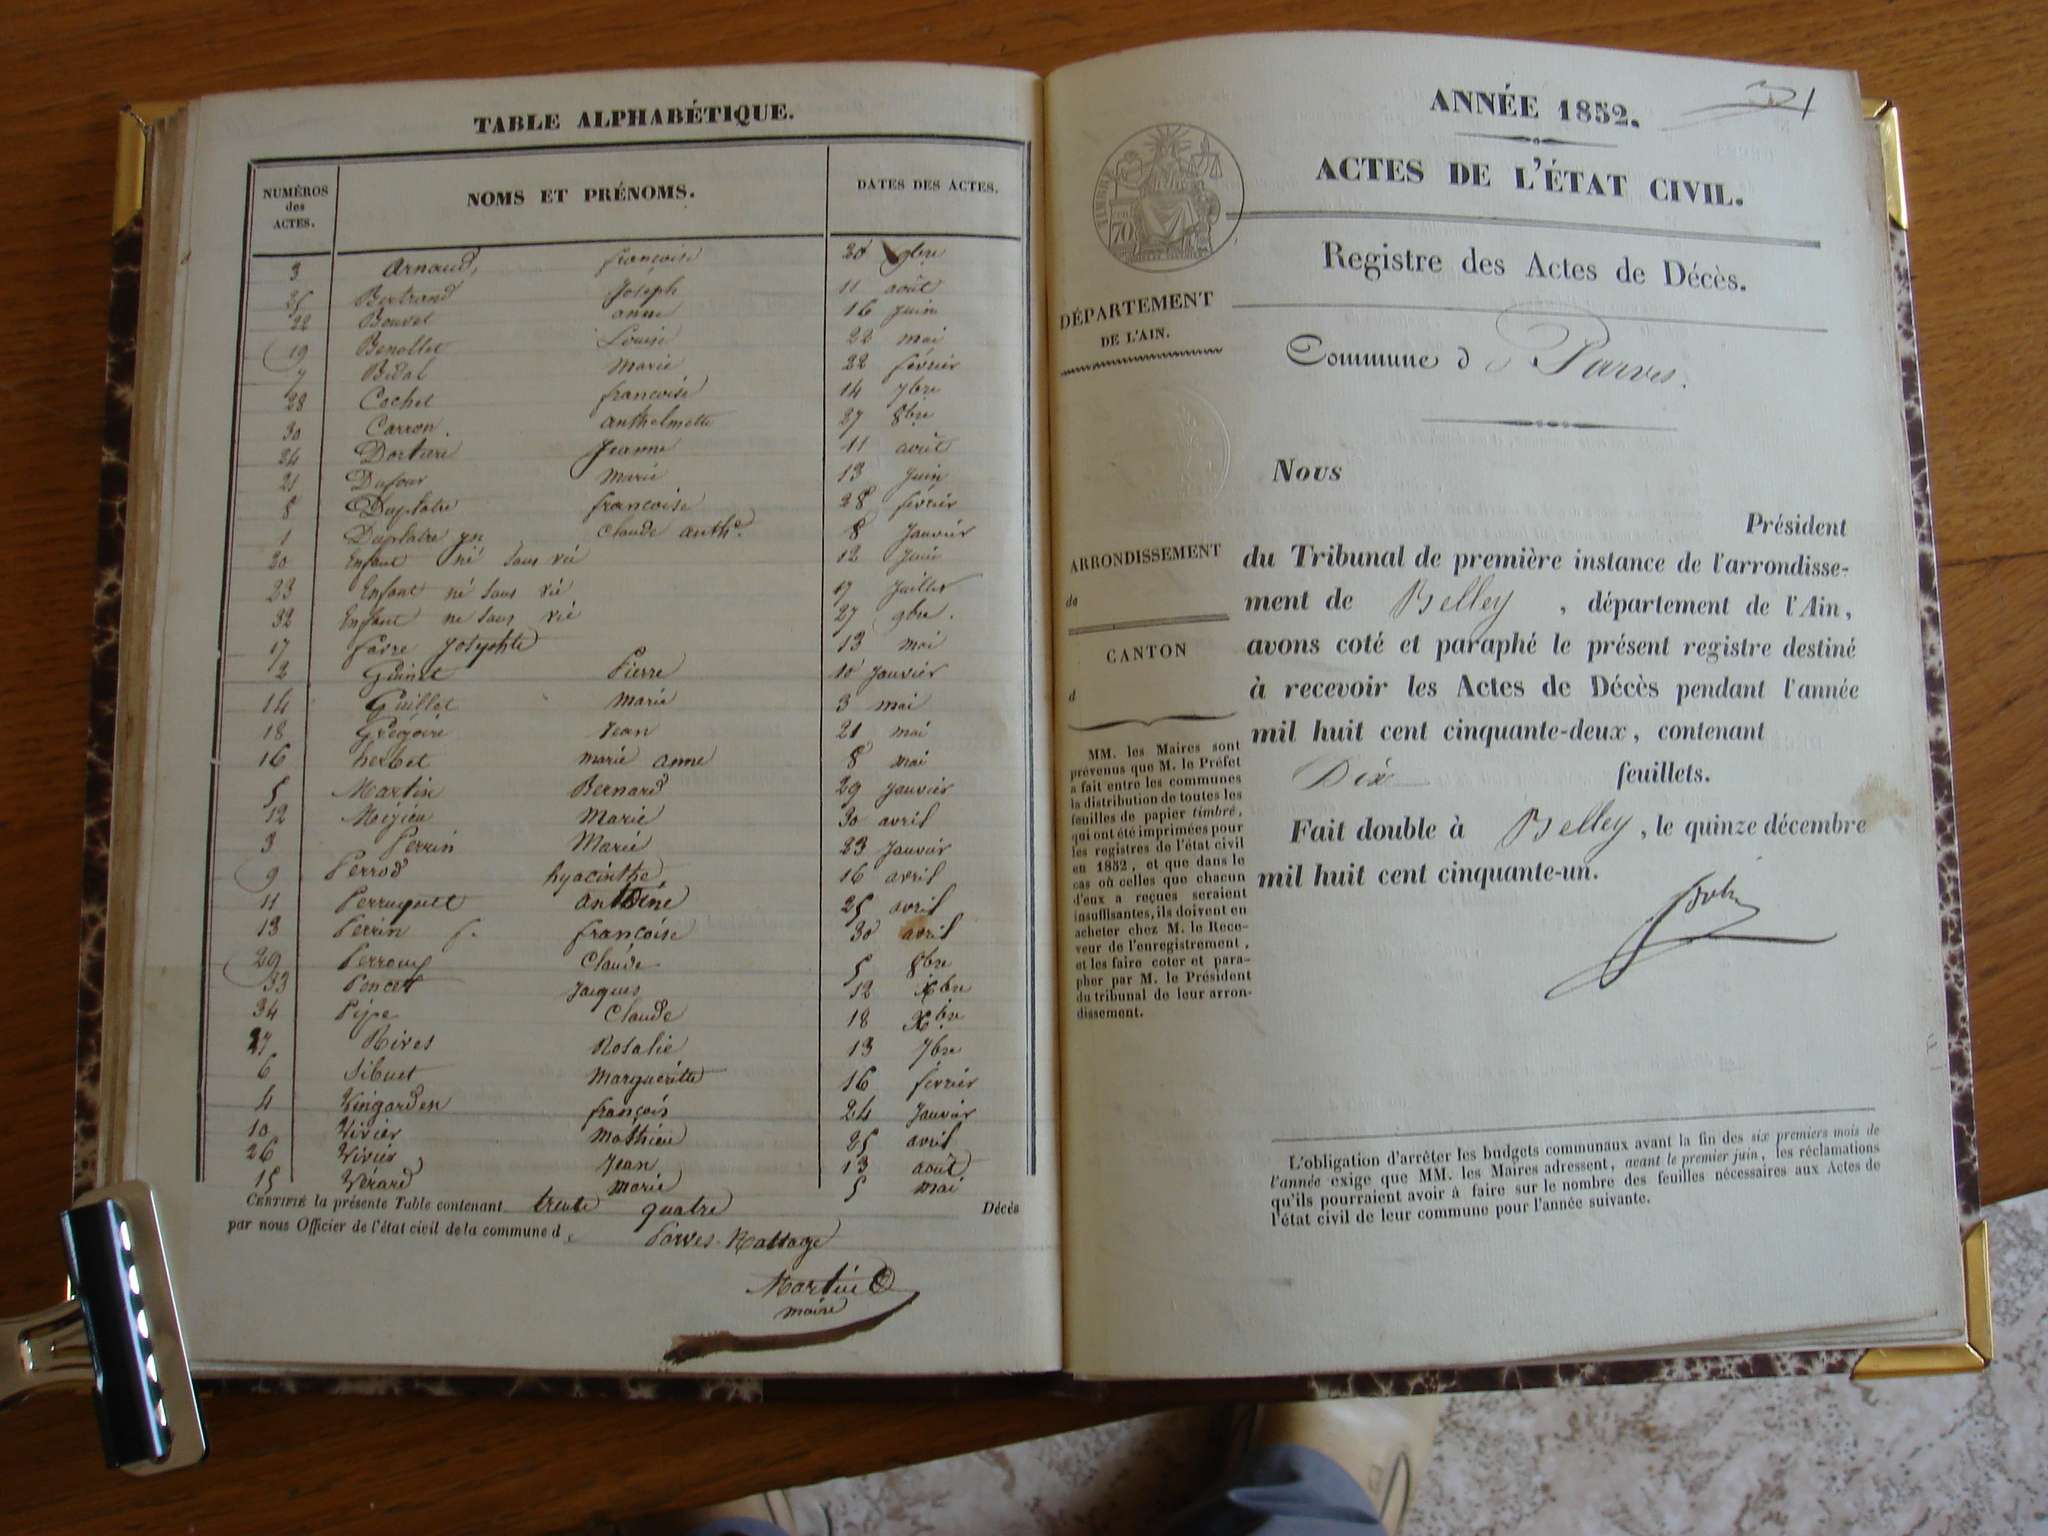 TABLE ALPHABÉTIQUE.
NUMÉROS des ACTES. NOMS ET PRÉNOMS. DATES DES ACTES.
3 Arnaud, françoise 20 9bre
25 Bertrand Joseph 11 août
22 Bouvet anne 16 Juin
19 Benollet Louise 22 mai
7 Bidal Marie 22 février
28 Cochet francoise 14 7bre
30 Carron. anthelmette 27 8bre
24 Jeanne 11 août
21 Dufour Marie 13 Juin
8 Duplatre francoise 28 février
1 Duplatre Claude anthe. 8 Janvier
20 Enfant né sans vie 12 Juin
23 Enfant né sans vie 17 Juillet
32 Enfant né sans vie 27 9bre.
17 favre Josephte 13 mai
2 Guinet Pierre 10 Janvier
14 Guillet Marie 3 mai
18 Grégoire Jean 21 mai
16 herbet marie anne 8 mai
5 Martin Bernard 29 Janvier
12 Marie 30 avril
3 Perrin Marie 23 Janvier
9 Perrod hyacinthe 16 avril
11 antoine 25 avril
13 Perrin françoise 30 avril
29 Claude 5 8bre
33 Poncet Jacques 12 Xbre
34 Pipe Claude 18 Xbre
27 Rives Rosalie 13 7bre
6 Sibuet Marguerite 16 février
4 Vingarden françois 24 Janvier
10 Vivier Mathieu 25 avril
26 Vivier Jean 13 août
15 Vérard marie 5 mai
CERTIFIÉ la présente Table contenant trente quatre Décès
par nous Officier de l'état civil de la commune de Parves-Nattage
Martin
maire
1
ANNÉE 1852.
ACTES DE L'ÉTAT CIVIL.
TIMBRE
70
Registre des Actes de Décès.
DÉPARTEMENT
DE L'AIN.
Commune de Parves.
Nous
Président
ARRONDISSEMENT
de
CANTON
d
du Tribunal de première instance de l'arrondisse-
ment de Belley, département de l'Ain,
avons coté et paraphé le présent registre destiné
à recevoir les Actes de Décès pendant l'année
mil huit cent cinquante-deux, contenant
Dix feuillets.
Fait double à Belley, le quinze décembre
mil huit cent cinquante-un.
MM. les Maires sont
prévenus que M. le Préfet
a fait entre les communes
la distribution de toutes les
feuilles de papier timbré,
qui ont été imprimées pour
les registres de l'état civil
en 1852, et que dans le
cas où celles que chacun
d'eux a reçues seraient
insuffisantes, ils doivent en
acheter chez M. le Rece-
veur de l'enregistrement,
et les faire coter et para-
pher par M. le Président
du tribunal de leur arron-
dissement.
L'obligation d'arrêter les budgets communaux avant la fin des six premiers mois de
l'année exige que MM. les Maires adressent, avant le premier juin, les réclamations
qu'ils pourraient avoir à faire sur le nombre des feuilles nécessaires aux Actes de
l'état civil de leur commune pour l'année suivante.